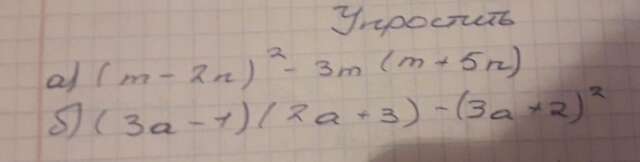 Упростить
а) (m - 2n)² - 3m (m + 5n)
б) (3a - 1)(2a + 3) - (3a + 2)²